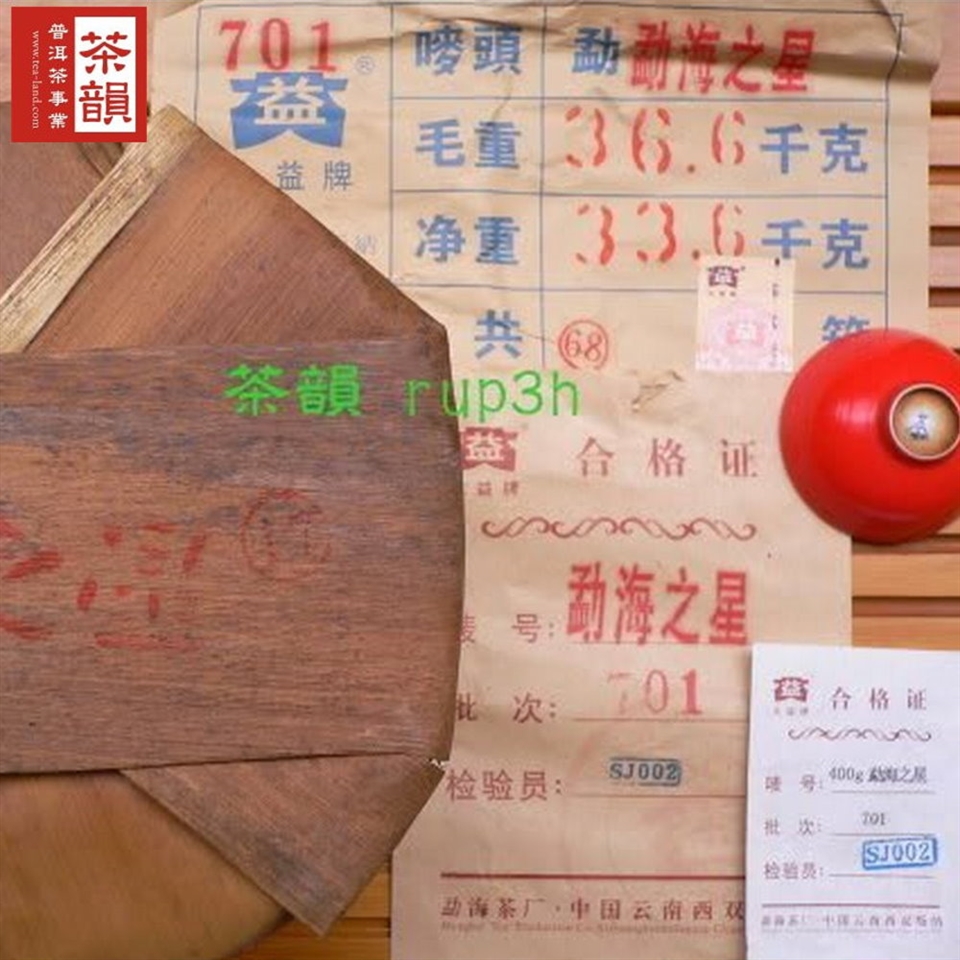 茶韻
普洱茶事業
www.tea-land.com
701
益
®
益牌
納
嘜頭 勐 勐海之星
毛重 36.6 千克
净重 33.6 千克
共 68
茶韻 rup3h
益
益牌
合格证
号: 勐海之星
批 次: 701
检验员: SJ002
勐海茶厂·中国云南西双
之星
益
合格证
唛 号: 400g 勐海之星
批 次: 701
检验员: SJ002
勐海茶厂·中国云南西双版纳